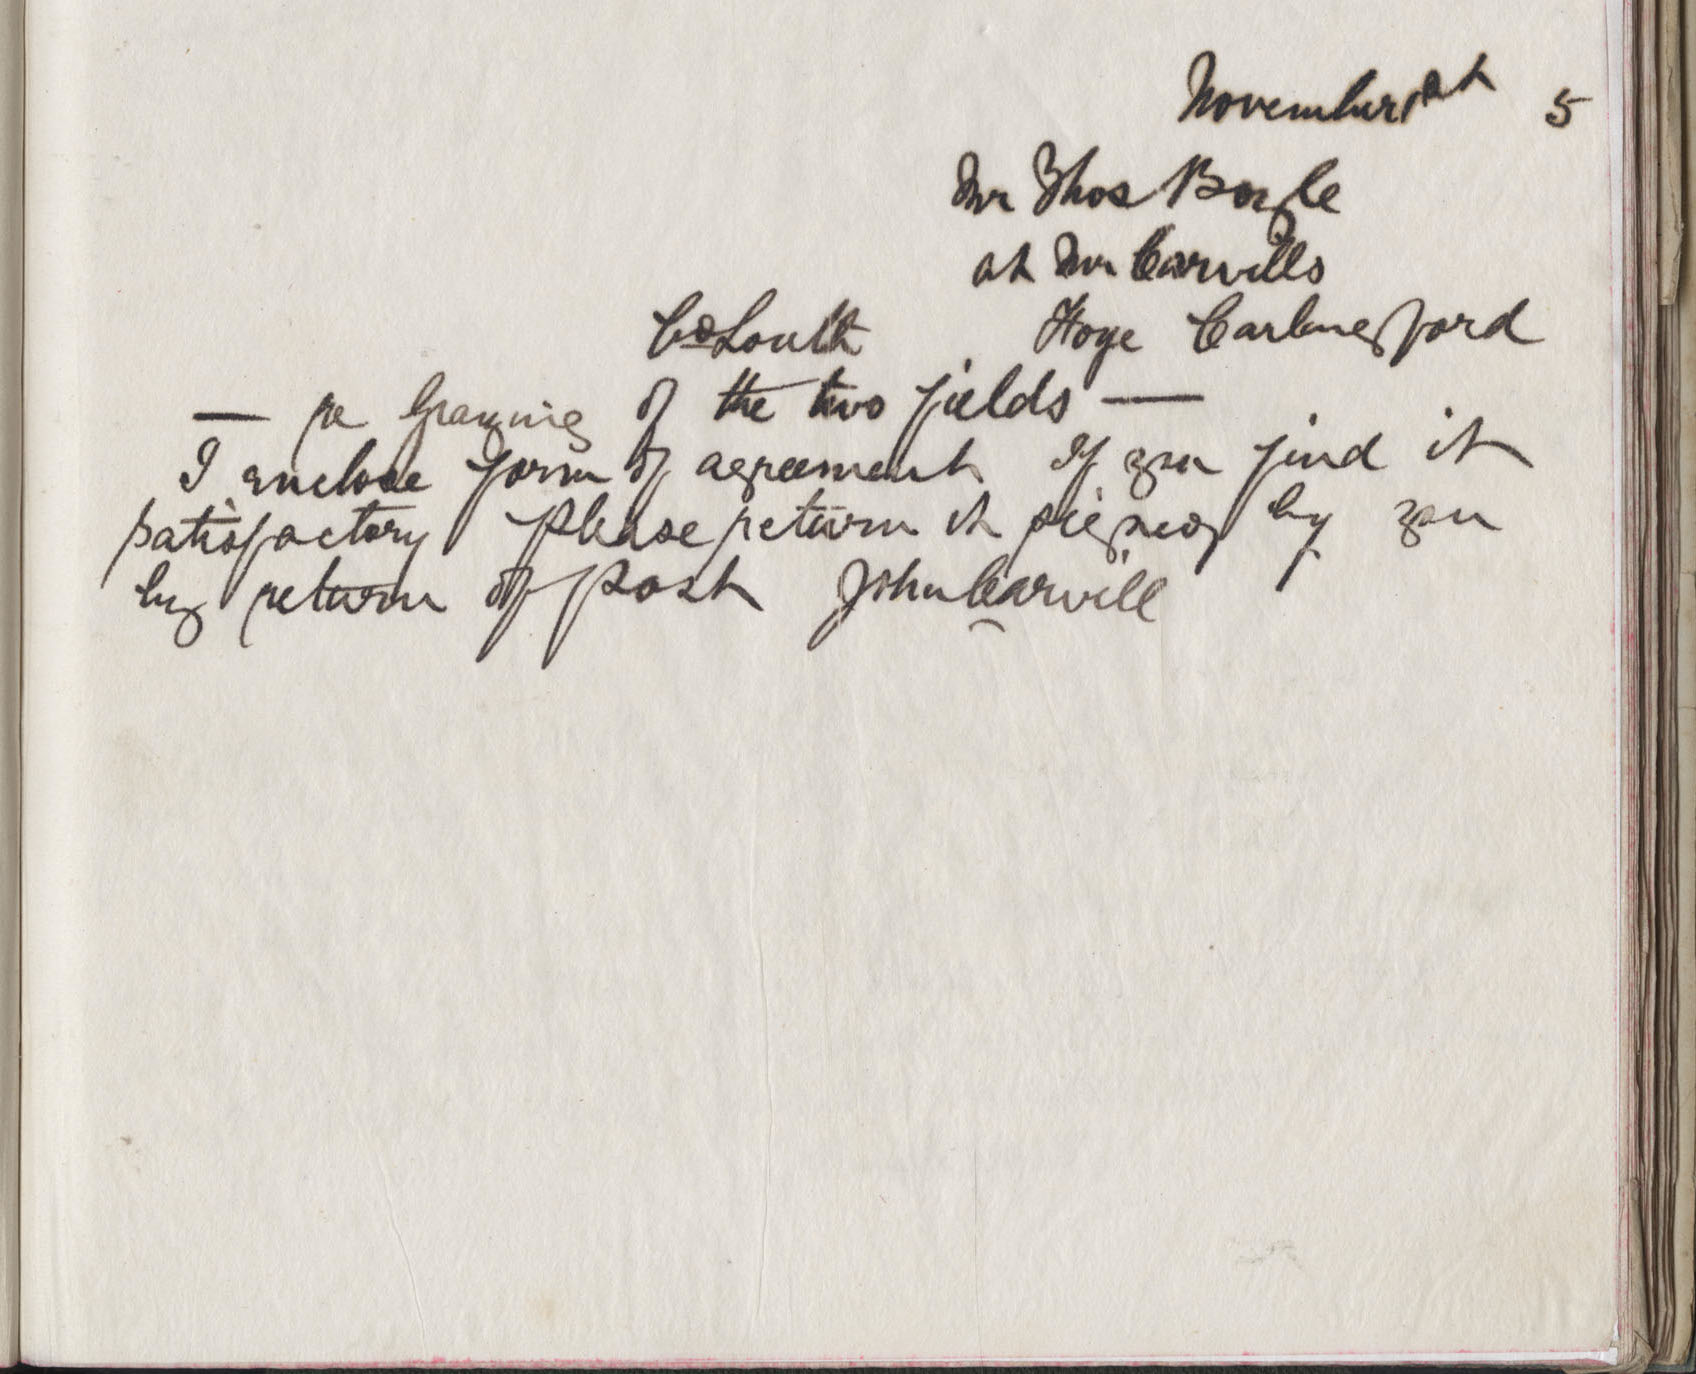 November 1st 5
Mr Thos Boyle
at Mr Carvills
Co Louth Hoye Carlingford
— re Grazing of the two fields —
I enclose form of agreement If you find it
satisfactory please return it signed by you
by return of post John Carvill